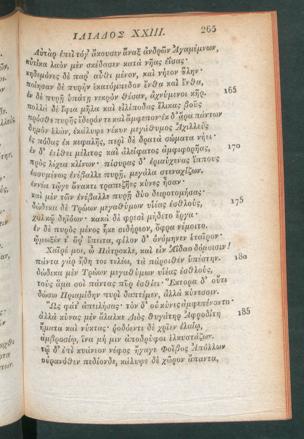 ΙΛΙΑΔΟΣ XXIII. 265
Αὐτὰρ ἐπεὶ τόγ' ἄκουσεν ἄναξ ἀνδρῶν Ἀγαμέμνων,
αὐτίκα λαὸν μὲν σκέδασεν κατὰ νῆας ἐΐσας·
κηδεμόνες δὲ παρ' αὖθι μένον, καὶ νήεον ὕλην·
ποίησαν δὲ πυρὴν ἑκατόμπεδον ἔνθα καὶ ἔνθα,
ἐν δὲ πυρῇ ὑπάτῃ νεκρὸν θέσαν, ἀχνύμενοι κῆρ. 165
πολλὰ δὲ ἴφια μῆλα καὶ εἰλίποδας ἕλικας βοῦς
πρόσθε πυρῆς ἔδερόν τε καὶ ἄμφεπον· ἐκ δ' ἄρα πάντων
δημὸν ἑλὼν, ἐκάλυψε νέκυν μεγάθυμος Ἀχιλλεὺς
ἐς πόδας ἐκ κεφαλῆς, περὶ δὲ δρατὰ σώματα νήει·
ἐν δ' ἐτίθει μέλιτος καὶ ἀλείφατος ἀμφιφορῆας, 170
πρὸς λέχεα κλίνων· πίσυρας δ' ἐριαύχενας ἵππους
ἐσσυμένως ἐνέβαλλε πυρῇ, μεγάλα στεναχίζων.
ἐννέα τῷγε ἄνακτι τραπεζῆες κύνες ἦσαν·
καὶ μὲν τῶν ἐνέβαλλε πυρῇ δύο δειροτομήσας·
δώδεκα δὲ Τρώων μεγαθύμων υἱέας ἐσθλοὺς, 175
χαλκῷ δηϊόων· κακὰ δὲ φρεσὶ μήδετο ἔργα·
ἐν δὲ πυρὸς μένος ἧκε σιδήρεον, ὄφρα νέμοιτο.
ᾤμωξέν τ' ἄρ' ἔπειτα, φίλον δ' ὀνόμηνεν ἑταῖρον·
Χαῖρέ μοι, ὦ Πάτροκλε, καὶ εἰν Ἀΐδαο δόμοισιν!
πάντα γὰρ ἤδη τοι τελέω, τὰ πάροιθεν ὑπέστην. 180
δώδεκα μὲν Τρώων μεγαθύμων υἱέας ἐσθλοὺς,
τοὺς ἅμα σοὶ πάντας πῦρ ἐσθίει· Ἕκτορα δ' οὔτι
δώσω Πριαμίδην πυρὶ δαπτέμεν, ἀλλὰ κύνεσσιν.
Ὣς φάτ' ἀπειλήσας· τὸν δ' οὐ κύνες ἀμφεπένοντο·
ἀλλὰ κύνας μὲν ἄλαλκε Διὸς θυγάτηρ Ἀφροδίτη 185
ἤματα καὶ νύκτας· ῥοδόεντι δὲ χρῖεν ἐλαίῳ,
ἀμβροσίῳ, ἵνα μή μιν ἀποδρύφοι ἑλκυστάζων.
τῷ δ' ἐπὶ κυάνεον νέφος ἤγαγε Φοῖβος Ἀπόλλων
οὐρανόθεν πεδίονδε, κάλυψε δὲ χῶρον ἅπαντα,